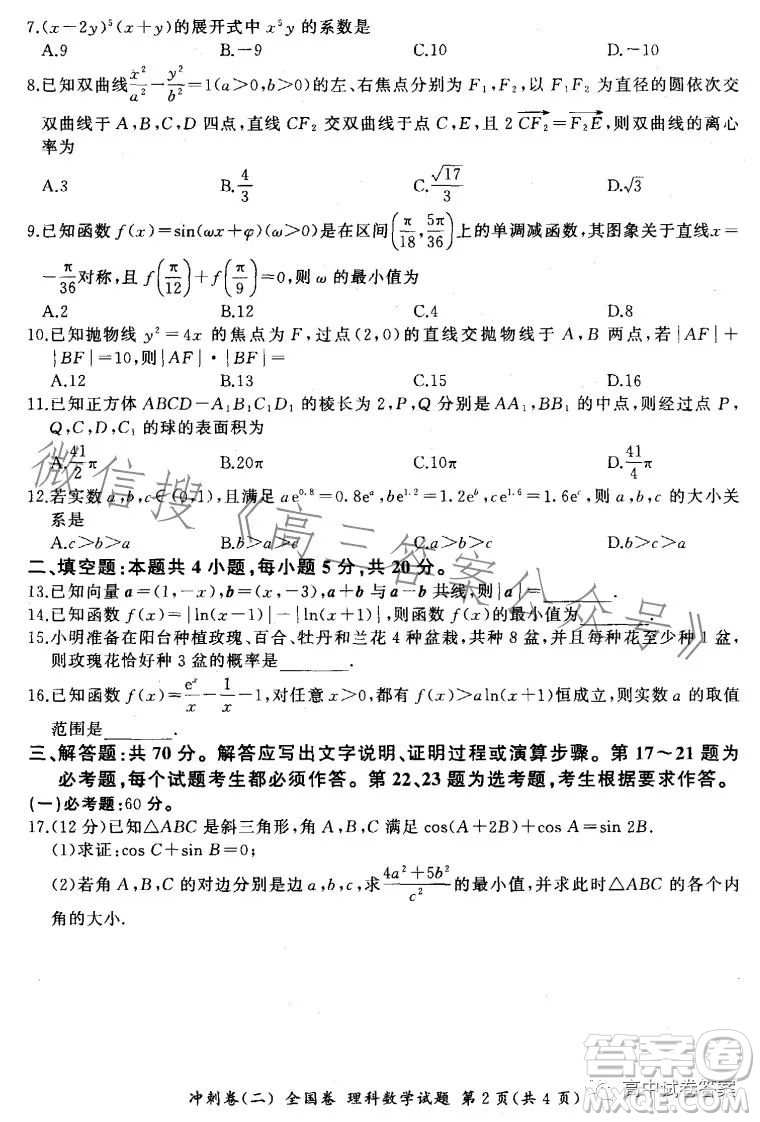 7.(x-2y)⁵(x+y)的展开式中 x⁵y 的系数是
A.9 B.-9 C.10 D.-10
8.已知双曲线x²/a²-y²/b²=1(a>0,b>0)的左、右焦点分别为 F₁,F₂,以 F₁F₂ 为直径的圆依次交
双曲线于 A,B,C,D 四点,直线 CF₂ 交双曲线于点 C,E,且 2CF₂→=F₂E→,则双曲线的离心
率为
A.3 B.4/3 C.√17/3 D.√3
9.已知函数 f(x)=sin(ωx+φ)(ω>0)是在区间(π/18,5π/36)上的单调减函数,其图象关于直线x=
-π/36对称,且 f(π/12)+f(π/9)=0,则 ω 的最小值为
A.2 B.12 C.4 D.8
10.已知抛物线 y²=4x 的焦点为 F,过点(2,0)的直线交抛物线于 A,B 两点,若|AF|+
|BF|=10,则|AF|·|BF|=
A.12 B.13 C.15 D.16
11.已知正方体 ABCD-A₁B₁C₁D₁ 的棱长为 2,P,Q 分别是 AA₁,BB₁ 的中点,则经过点 P,
Q,C,D,C₁ 的球的表面积为
A.41/2π B.20π C.10π D.41/4π
12.若实数 a,b,c∈(0,1),且满足 ae⁰·⁸=0.8eᵃ,be¹·²=1.2eᵇ,ce¹·⁶=1.6eᶜ,则 a,b,c 的大小关
系是
A.c>b>a B.b>a>c C.a>b>c D.b>c>a
二、填空题:本题共 4 小题,每小题 5 分,共 20 分。
13.已知向量 a=(1,-x),b=(x,-3),a+b 与 a-b 共线,则|a|=______.
14.已知函数 f(x)=|ln(x-1)|-|ln(x+1)|,则函数 f(x)的最小值为______.
15.小明准备在阳台种植玫瑰、百合、牡丹和兰花 4 种盆栽,共种 8 盆,并且每种花至少种 1 盆,
则玫瑰花恰好种 3 盆的概率是______.
16.已知函数 f(x)=eˣ/x-1/x-1,对任意 x>0,都有 f(x)>aln(x+1)恒成立,则实数 a 的取值
范围是______.
三、解答题:共 70 分。解答应写出文字说明、证明过程或演算步骤。第 17~21 题为
必考题,每个试题考生都必须作答。第 22、23 题为选考题,考生根据要求作答。
(一)必考题:60 分。
17.(12 分)已知△ABC 是斜三角形,角 A,B,C 满足 cos(A+2B)+cos A=sin 2B.
(1)求证:cos C+sin B=0;
(2)若角 A,B,C 的对边分别是边 a,b,c,求(4a²+5b²)/c²的最小值,并求此时△ABC 的各个内
角的大小.
冲刺卷(二) 全国卷 理科数学试题 第 2 页(共 4 页)
微信搜《高三答案公众号》
高中试卷答案
答案圈
MXQE.COM